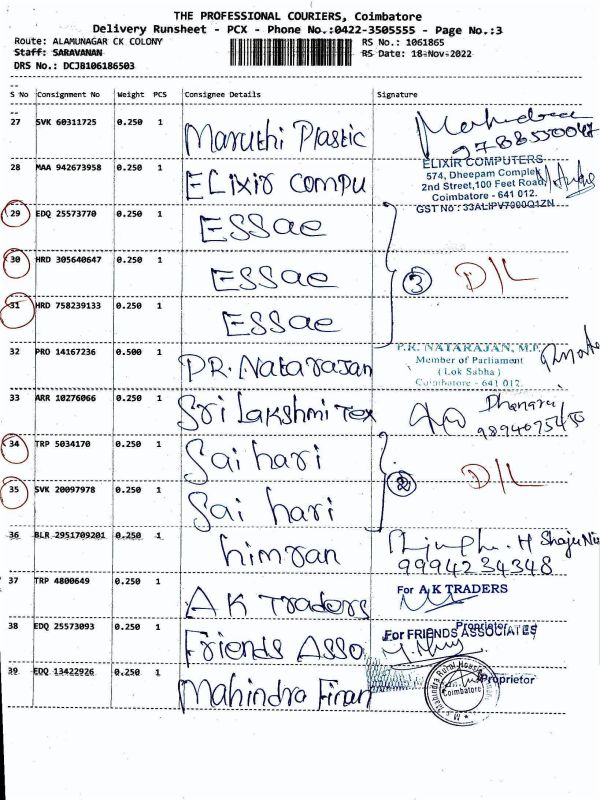 THE PROFESSIONAL COURIERS, Coimbatore
Delivery Runsheet - PCX - Phone No.:0422-3505555 - Page No.:3
Route: ALAMUNAGAR CK COLONY
RS No.: 1061865
Staff: SARAVANAN
RS Date: 18-Nov-2022
DRS No.: DCJB106186503
S No Consignment No Weight PCS Consignee Details Signature
27 SVK 60311725 0.250 1 Maruthi Plastic
28 MAA 942673958 0.250 1 Elixir compu
ELIXIR COMPUTERS
574, Dheepam Complex
2nd Street,100 Feet Road,
Coimbatore - 641 012.
GST No : 33ALIPV7000Q1ZN
29 EDQ 25573770 0.250 1 ESSae
30 HRD 305640647 0.250 1 ESSae
3 D/L
31 HRD 758239133 0.250 1 ESSae
32 PRO 14167236 0.500 1 P.R. Natarajan
P.R. NATARAJAN, M.P.
Member of Parliament
( Lok Sabha )
Coimbatore - 641 012.
33 ARR 10276066 0.250 1 Sri Lakshmi Tex
34 TRP 5034170 0.250 1 Sai hari
2 D/L
35 SVK 20097978 0.250 1 Sai hari
36 BLR 2951709201 0.250 1 himran
9994234348
37 TRP 4800649 0.250 1 A K Traders
For A K TRADERS
Proprietor
38 EDQ 25573093 0.250 1 Friends Asso
For FRIENDS ASSOCIATES
Proprietor
39 EDQ 13422926 0.250 1 Mahindra Finan
Coimbatore